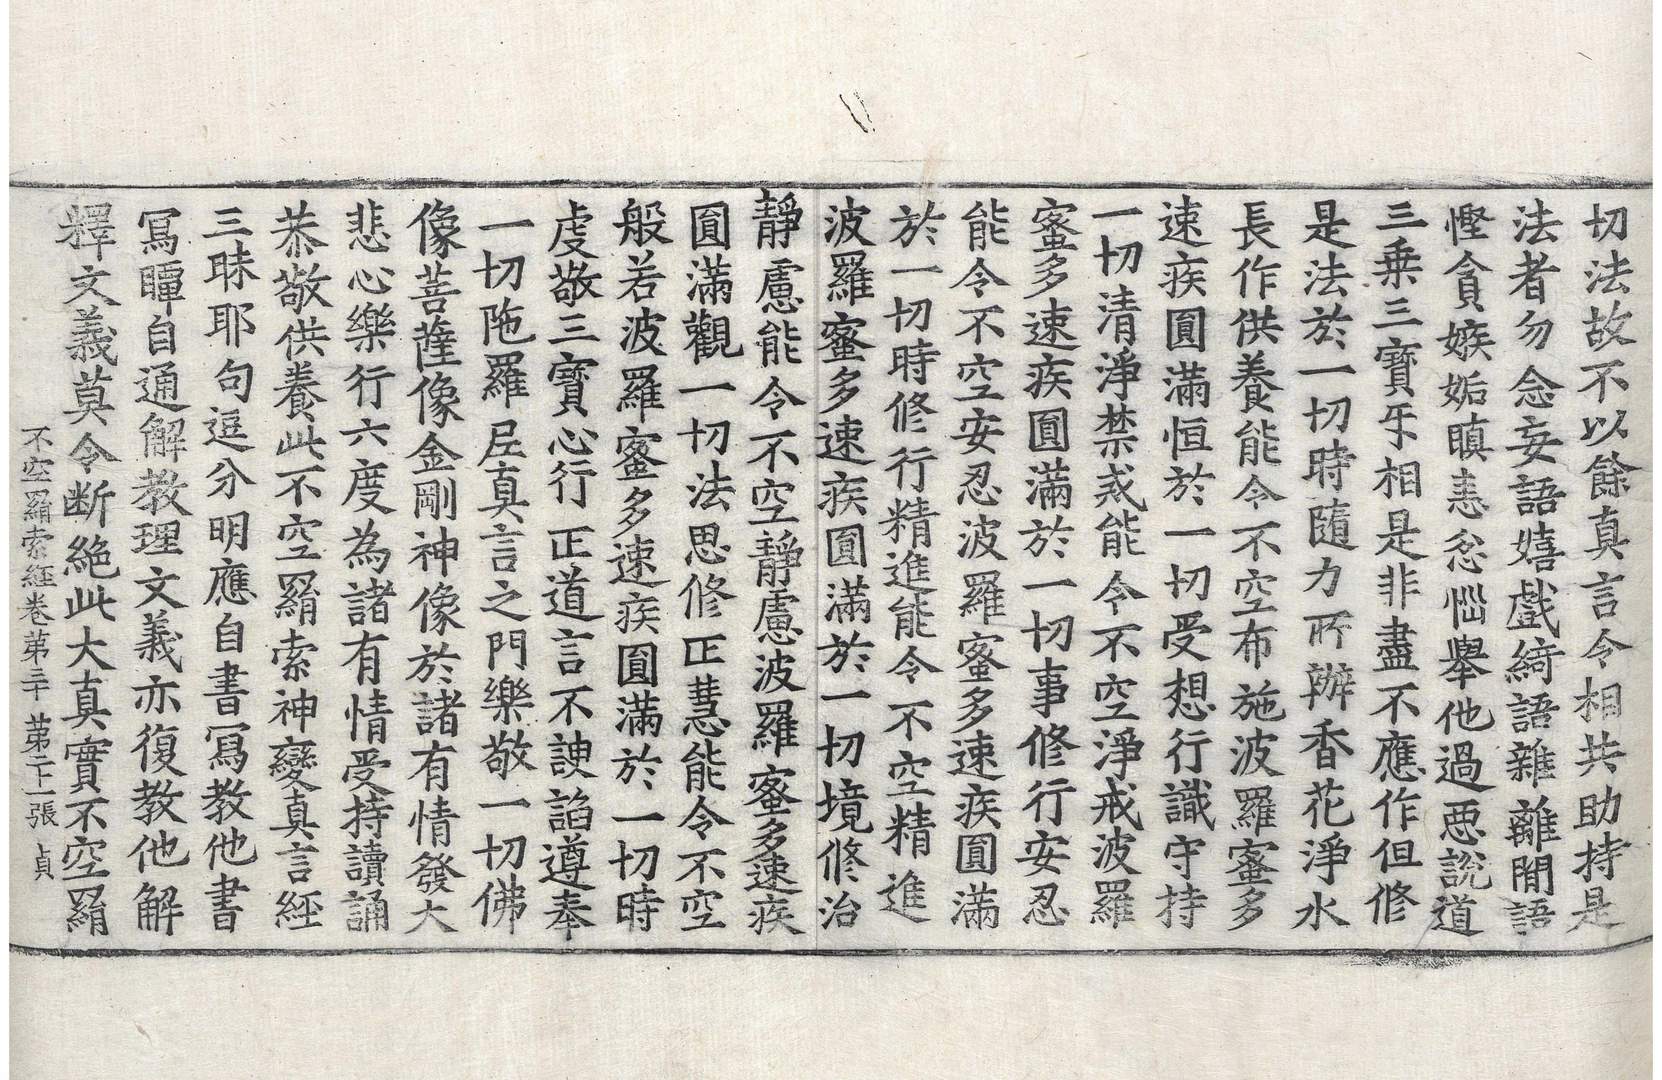 切法故不以餘真言令相共助持是
法者勿念妄語嬉戲綺語雜離間語
慳貪嫉妬瞋恚忿惱舉他過惡說道
三乗三寶乎相是非盡不應作但修
是法於一切時隨力所辦香花淨水
長作供養能令不空布施波羅蜜多
速疾圓滿恒於一切受想行識守持
一切清淨禁戒能令不空淨戒波羅
蜜多速疾圓滿於一切事修行安忍
能令不空安忍波羅蜜多速疾圓滿
於一切時修行精進能令不空精進
波羅蜜多速疾圓滿於一切境修治
靜慮能令不空靜慮波羅蜜多速疾
圓滿觀一切法思修正慧能令不空
般若波羅蜜多速疾圓滿於一切時
虔敬三寶心行正道言不諛諂遵奉
一切陁羅尼真言之門樂敬一切佛
像菩薩像金剛神像於諸有情發大
悲心樂行六度為諸有情受持讀誦
恭敬供養此不空羂索神變真言經
三昧耶句逗分明應自書冩教他書
冩暉自通解教理文義亦復教他解
釋文義莫令断絕此大真實不空羂
不空羂索經卷第三十 第二十一張 貞